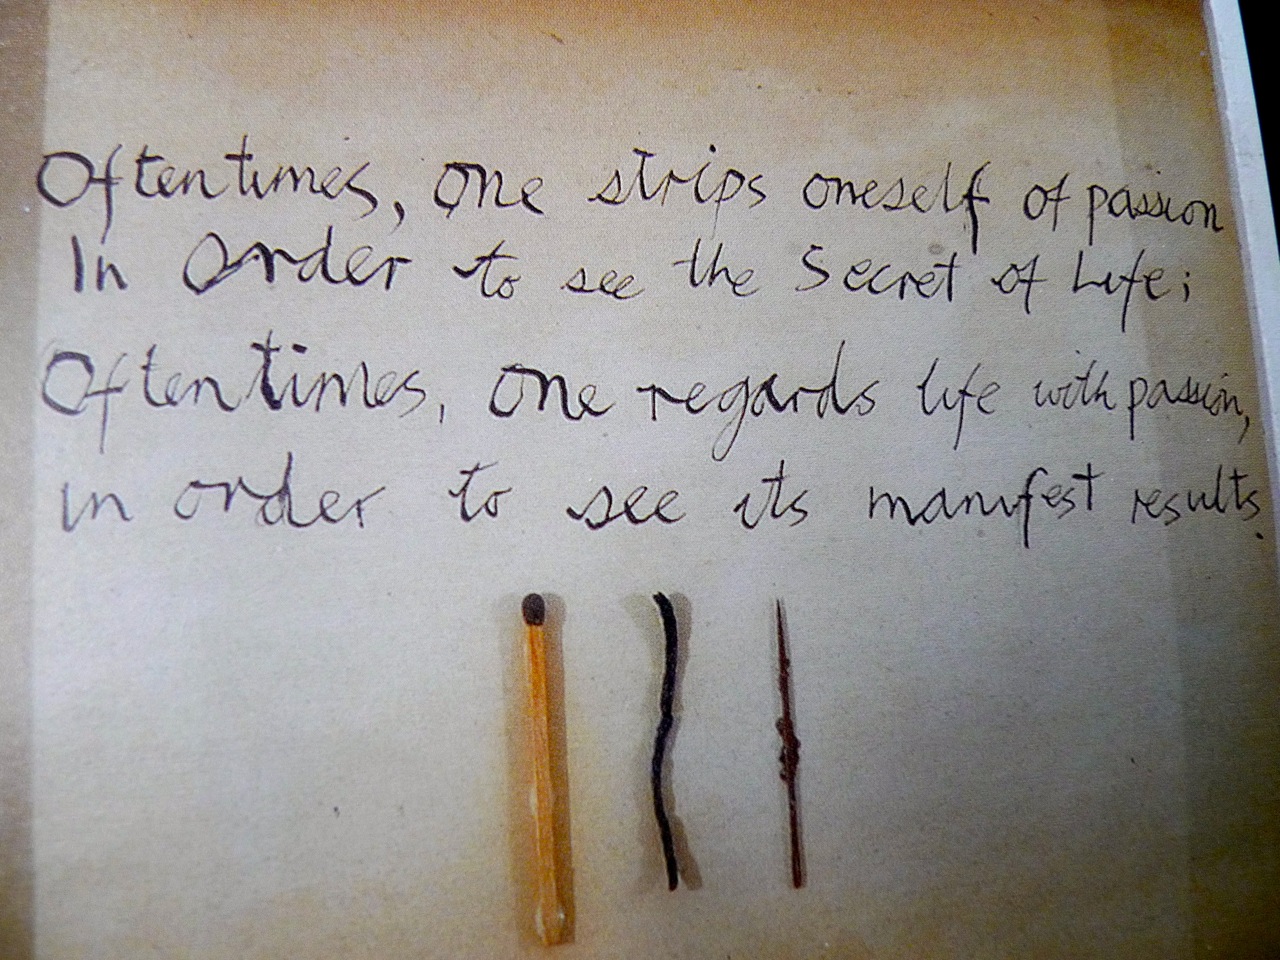 Oftentimes, one strips oneself of passion
In order to see the Secret of Life;
Oftentimes, one regards life with passion,
in order to see its manifest results.